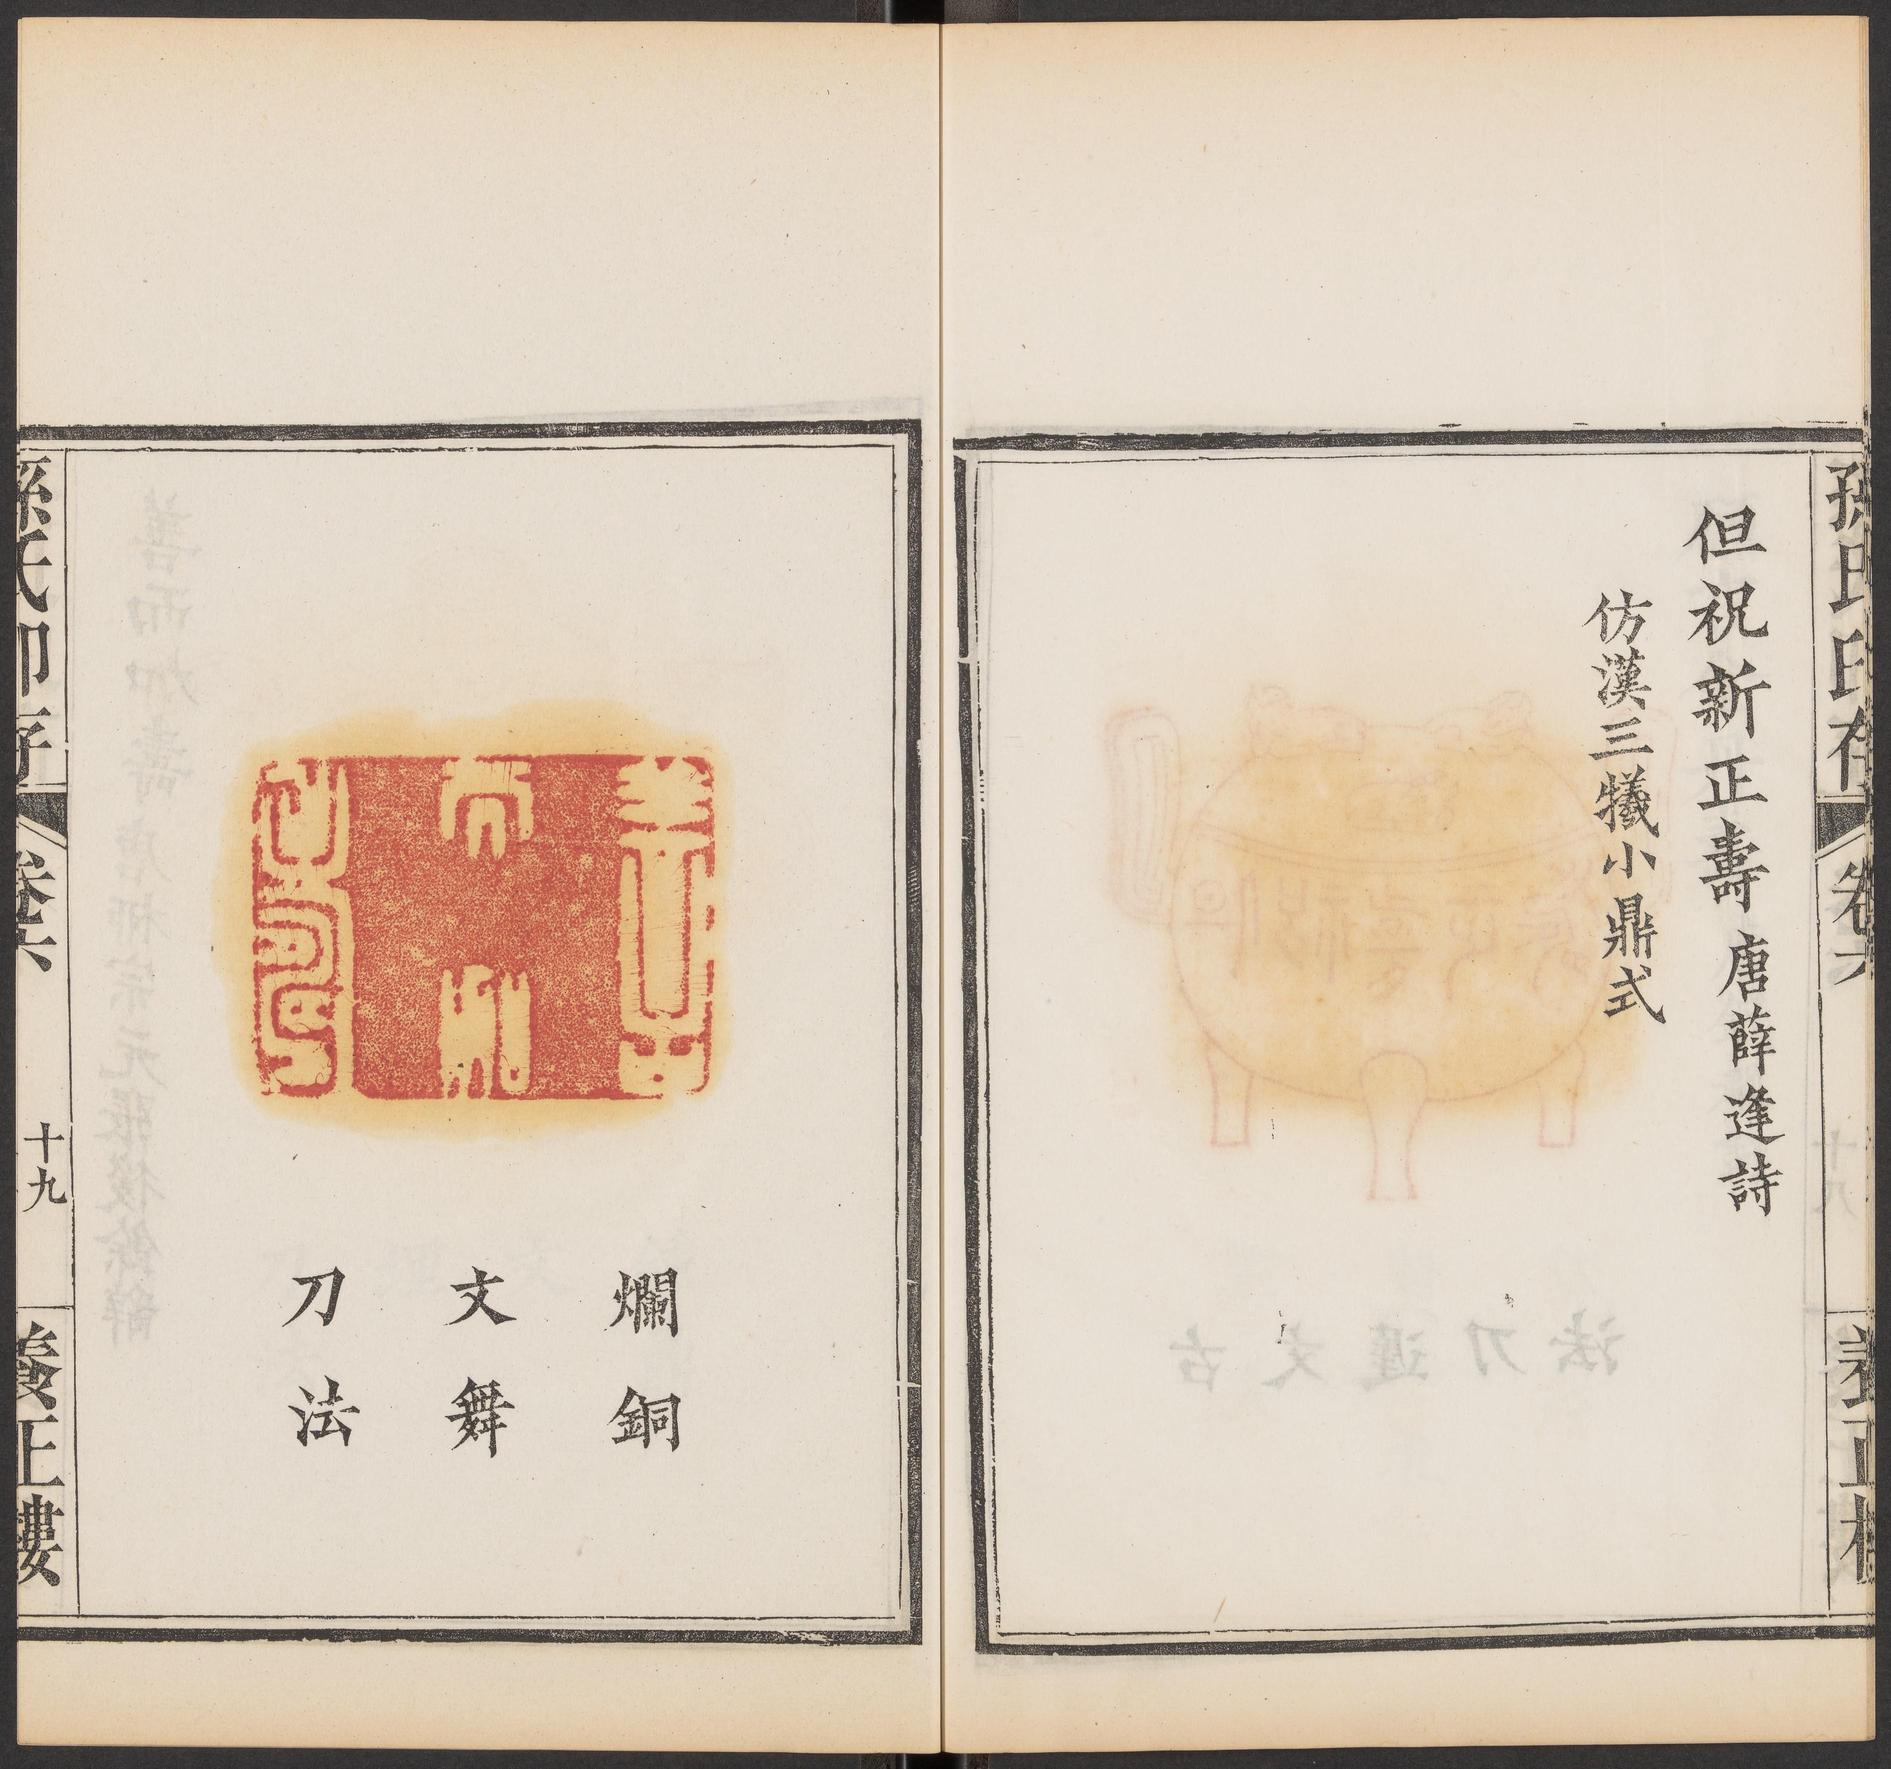 孫氏印存
卷六
養正樓
但祝新正壽 唐薛逢詩
仿漢三犧小鼎式
爛銅
文舞
刀法
孫氏印存
卷六
十九
養正樓